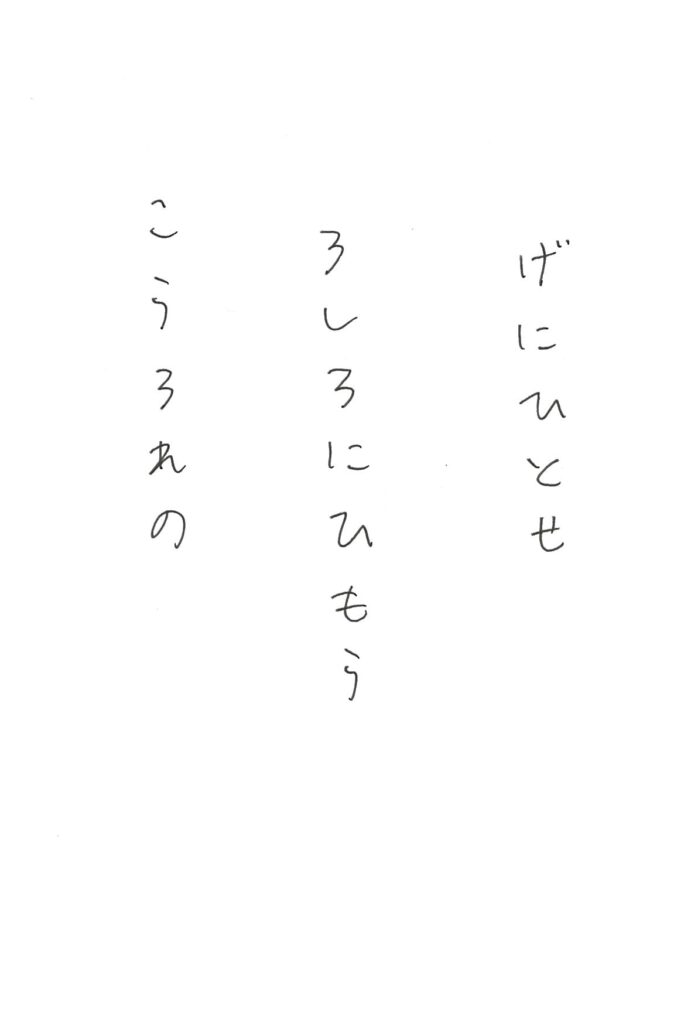 げにひとせ
ろしろにひもう
こうろれの